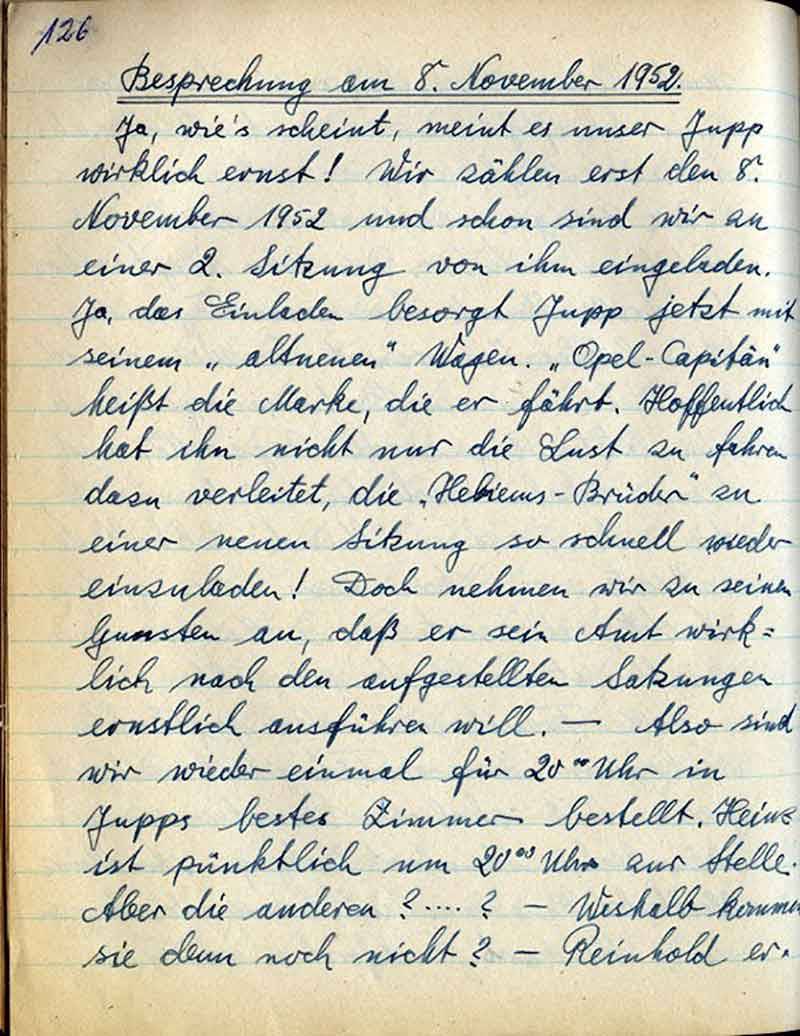 126
Besprechung am 8. November 1952.
Ja, wie's scheint, meint es unser Jupp
wirklich ernst! Wir zählen erst den 8.
November 1952 und schon sind wir an
einer 2. Sitzung von ihm eingeladen.
Ja, das Einladen besorgt Jupp jetzt mit
seinem „altneuen" Wagen. „Opel-Capitän"
heißt die Marke, die er fährt. Hoffentlich
hat ihn nicht nur die Lust zu fahren
dazu verleitet, die „Hebiems-Brüder" zu
einer neuen Sitzung so schnell wieder
einzuladen! Doch nehmen wir zu seinen
Gunsten an, daß er sein Amt wirk=
lich nach den aufgestellten Satzungen
ernstlich ausführen will. — Also sind
wir wieder einmal für 20⁰⁰ Uhr in
Jupps bestes Zimmer bestellt. Heinz
ist pünktlich um 20⁰⁰ Uhr zur Stelle.
Aber die anderen ?....? — Weshalb kommen
sie denn noch nicht? — Reinhold er-